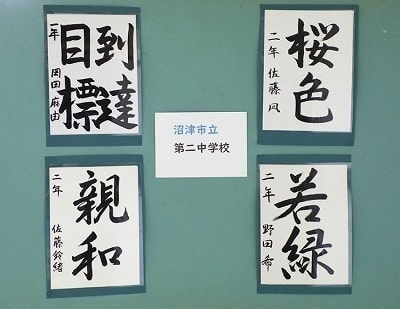 到達
目標
一年 岡田麻由
桜色
二年 佐藤凪
沼津市立
第二中学校
親和
二年 佐藤鈴緒
若緑
二年 野田希